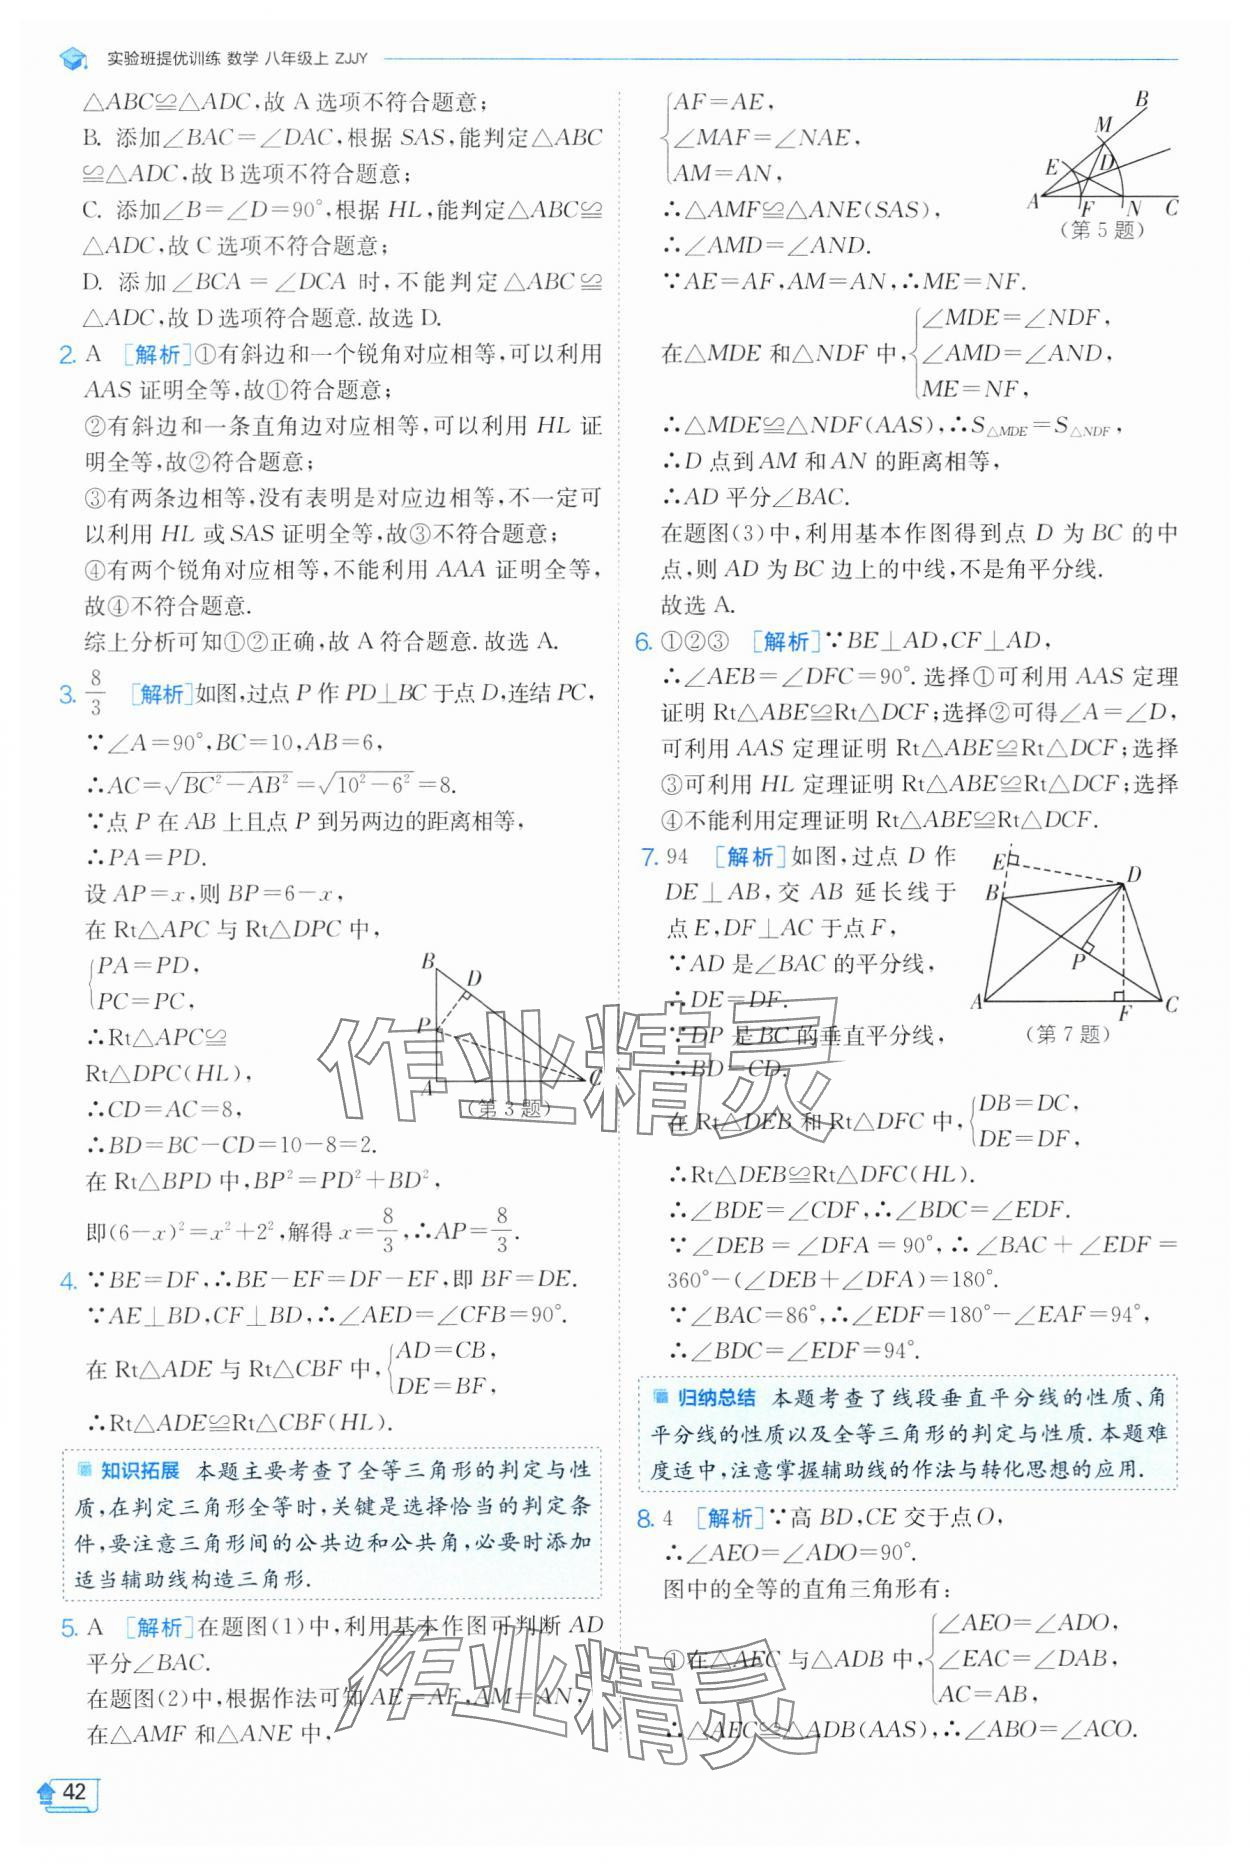 实验班提优训练 数学 八年级上 ZJJY
△ABC≌△ADC,故 A 选项不符合题意;
B. 添加∠BAC=∠DAC,根据 SAS,能判定△ABC
≌△ADC,故 B 选项不符合题意;
C. 添加∠B=∠D=90°,根据 HL,能判定△ABC≌
△ADC,故 C 选项不符合题意;
D. 添加∠BCA=∠DCA 时,不能判定△ABC≌
△ADC,故 D 选项符合题意.故选 D.
2. A [解析]①有斜边和一个锐角对应相等,可以利用
AAS 证明全等,故①符合题意;
②有斜边和一条直角边对应相等,可以利用 HL 证
明全等,故②符合题意;
③有两条边相等,没有表明是对应边相等,不一定可
以利用 HL 或 SAS 证明全等,故③不符合题意;
④有两个锐角对应相等,不能利用 AAA 证明全等,
故④不符合题意.
综上分析可知①②正确,故 A 符合题意.故选 A.
3. 8/3 [解析]如图,过点 P 作 PD⊥BC 于点 D,连结 PC,
∵∠A=90°,BC=10,AB=6,
∴AC=√(BC²-AB²)=√(10²-6²)=8.
∵点 P 在 AB 上且点 P 到另两边的距离相等,
∴PA=PD.
设 AP=x,则 BP=6-x,
在 Rt△APC 与 Rt△DPC 中,
{PA=PD,
PC=PC,
∴Rt△APC≌
Rt△DPC(HL),
∴CD=AC=8,
B D P A C
(第 3 题)
∴BD=BC-CD=10-8=2.
在 Rt△BPD 中,BP²=PD²+BD²,
即(6-x)²=x²+2²,解得 x=8/3,∴AP=8/3.
4. ∵BE=DF,∴BE-EF=DF-EF,即 BF=DE.
∵AE⊥BD,CF⊥BD,∴∠AED=∠CFB=90°.
在 Rt△ADE 与 Rt△CBF 中,{AD=CB,
DE=BF,
∴Rt△ADE≌Rt△CBF(HL).
知识拓展 本题主要考查了全等三角形的判定与性
质,在判定三角形全等时,关键是选择恰当的判定条
件,要注意三角形间的公共边和公共角,必要时添加
适当辅助线构造三角形.
5. A [解析]在题图(1)中,利用基本作图可判断 AD
平分∠BAC.
在题图(2)中,根据作法可知 AE=AF,AM=AN,
在△AMF 和△ANE 中,
{AF=AE,
∠MAF=∠NAE,
AM=AN,
B M E D A F N C
(第 5 题)
∴△AMF≌△ANE(SAS),
∴∠AMD=∠AND.
∵AE=AF,AM=AN,∴ME=NF.
在△MDE 和△NDF 中,{∠MDE=∠NDF,
∠AMD=∠AND,
ME=NF,
∴△MDE≌△NDF(AAS),∴S△MDE=S△NDF,
∴D 点到 AM 和 AN 的距离相等,
∴AD 平分∠BAC.
在题图(3)中,利用基本作图得到点 D 为 BC 的中
点,则 AD 为 BC 边上的中线,不是角平分线.
故选 A.
6. ①②③ [解析]∵BE⊥AD,CF⊥AD,
∴∠AEB=∠DFC=90°.选择①可利用 AAS 定理
证明 Rt△ABE≌Rt△DCF;选择②可得∠A=∠D,
可利用 AAS 定理证明 Rt△ABE≌Rt△DCF;选择
③可利用 HL 定理证明 Rt△ABE≌Rt△DCF;选择
④不能利用定理证明 Rt△ABE≌Rt△DCF.
7. 94 [解析]如图,过点 D 作
DE⊥AB,交 AB 延长线于
点 E,DF⊥AC 于点 F,
∵AD 是∠BAC 的平分线,
∴DE=DF.
∵DP 是 BC 的垂直平分线,
∴BD=CD.
E D B P A F C
(第 7 题)
在 Rt△DEB 和 Rt△DFC 中,{DB=DC,
DE=DF,
∴Rt△DEB≌Rt△DFC(HL).
∴∠BDE=∠CDF,∴∠BDC=∠EDF.
∵∠DEB=∠DFA=90°,∴∠BAC+∠EDF=
360°-(∠DEB+∠DFA)=180°.
∵∠BAC=86°,∴∠EDF=180°-∠EAF=94°,
∴∠BDC=∠EDF=94°.
归纳总结 本题考查了线段垂直平分线的性质、角
平分线的性质以及全等三角形的判定与性质.本题难
度适中,注意掌握辅助线的作法与转化思想的应用.
8. 4 [解析]∵高 BD,CE 交于点 O,
∴∠AEO=∠ADO=90°.
图中的全等的直角三角形有:
①在△AEC 与△ADB 中,{∠AEO=∠ADO,
∠EAC=∠DAB,
AC=AB,
∴△AEC≌△ADB(AAS),∴∠ABO=∠ACO.
42
作业精灵
作业精灵